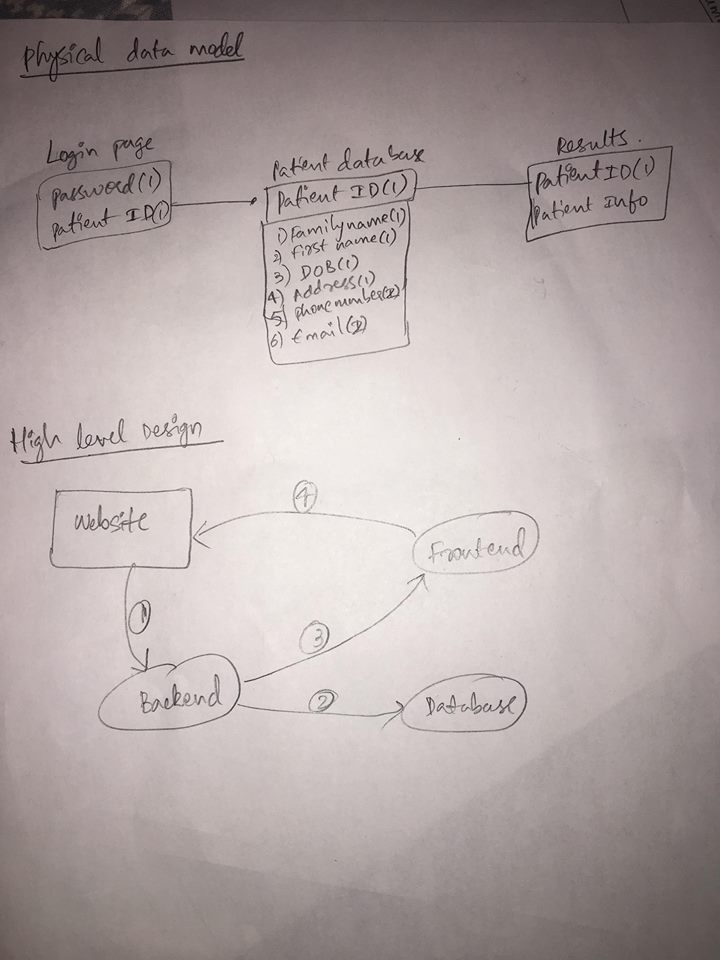 Physical data model
Login page
password(1)
patient ID(1)
Patient database
Patient ID(1)
1) Family name(1)
2) First name(1)
3) DOB(1)
4) Address(1)
5) phone number(2)
6) Email(2)
Results.
Patient ID(1)
Patient Info
High level Design
Website
4
Frontend
1
3
Backend
2
Database